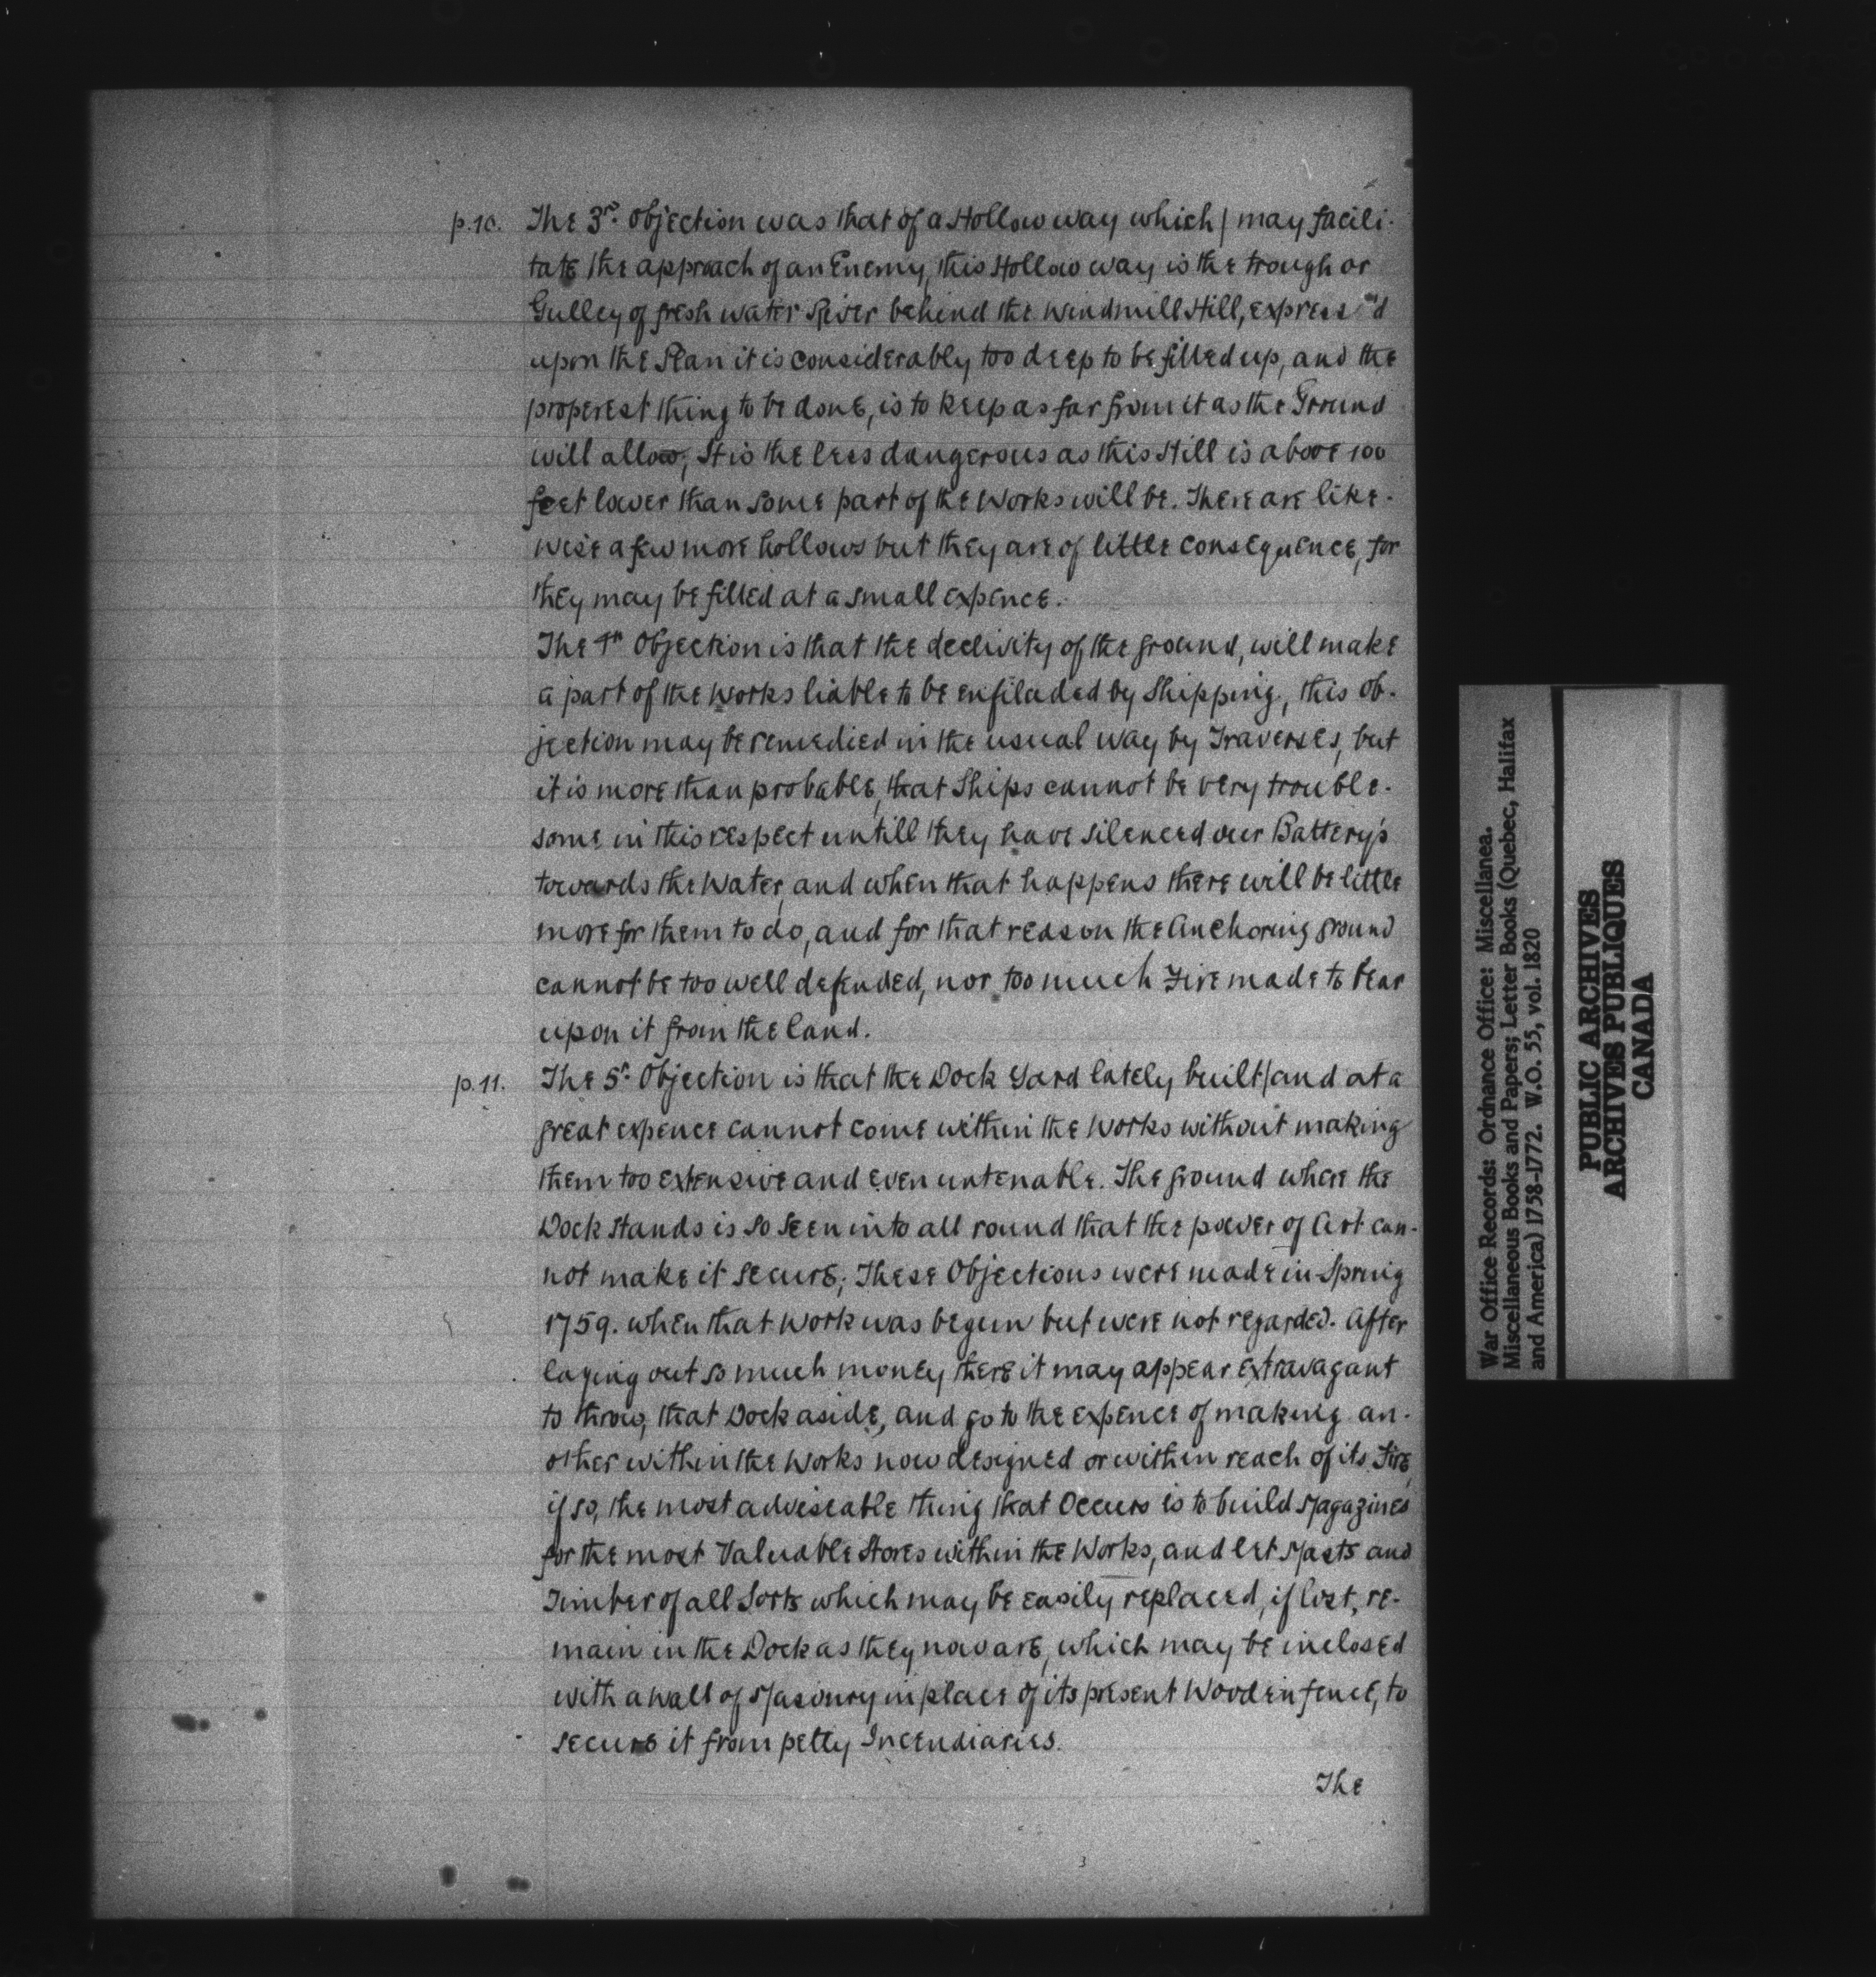 p.10. The 3rd. Objection was that of a Hollow way which / may facili-
tate the approach of an Enemy, this Hollow way is the trough or
Gulley of fresh water River behind the Windmill Hill, express'd
upon the Plan it is considerably too deep to be filled up, and the
properest thing to be done, is to keep as far from it as the Ground
will allow, It is the less dangerous as this Hill is above 100
feet lower than some part of the Works will be. There are like-
wise a few more hollows but they are of little consequence, for
they may be filled at a small expence.
The 4th Objection is that the declivity of the ground, will make
a part of the Works liable to be enfiladed by Shipping, this ob-
jection may be remedied in the usual way by Traverses, but
it is more than probable, that Ships cannot be very trouble-
some in this respect untill they have silenced our Battery's
towards the Water, and when that happens there will be little
more for them to do, and for that reason the Anchoring ground
cannot be too well defended, nor too much Fire made to bear
upon it from the land.
p.11. The 5th. Objection is that the Dock Yard lately built / and at a
great expence cannot come within the Works without making
them too extensive and even untenable. The ground where the
Dock stands is so seen into all round that the power of Art can-
not make it secure; These Objections were made in Spring
1759. when that Work was begun but were not regarded. After
laying out so much money there it may appear extravagant
to throw, that Dock aside, and go to the expence of making an-
other within the Works now designed or within reach of its Fire,
if so, the most adviseable thing that Occurs is to build Magazines
for the most Valuable Stores within the Works, and let Masts and
Timber of all Sorts which may be easily replaced, if lost, re-
main in the Dock as they now are, which may be inclosed
with a wall of Masonry in place of its present Wooden fence, to
secure it from petty Incendiaries.
The
3
War Office Records: Ordnance Office: Miscellanea.
Miscellaneous Books and Papers; Letter Books (Quebec, Halifax
and America) 1758-1772. W.O. 55, vol. 1820
PUBLIC ARCHIVES
ARCHIVES PUBLIQUES
CANADA